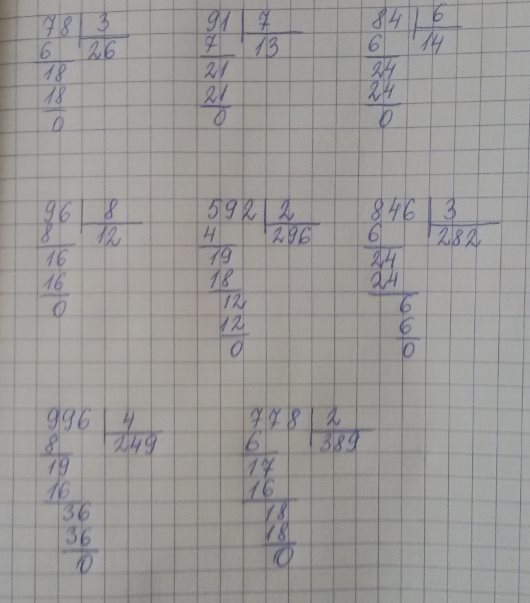 78 3
6 26
18
18
0
91 7
7 13
21
21
0
84 6
6 14
24
24
0
96 8
8 12
16
16
0
592 2
4 296
19
18
12
12
0
846 3
6 282
24
24
6
6
0
996 4
8 249
19
16
36
36
0
778 2
6 389
17
16
18
18
0